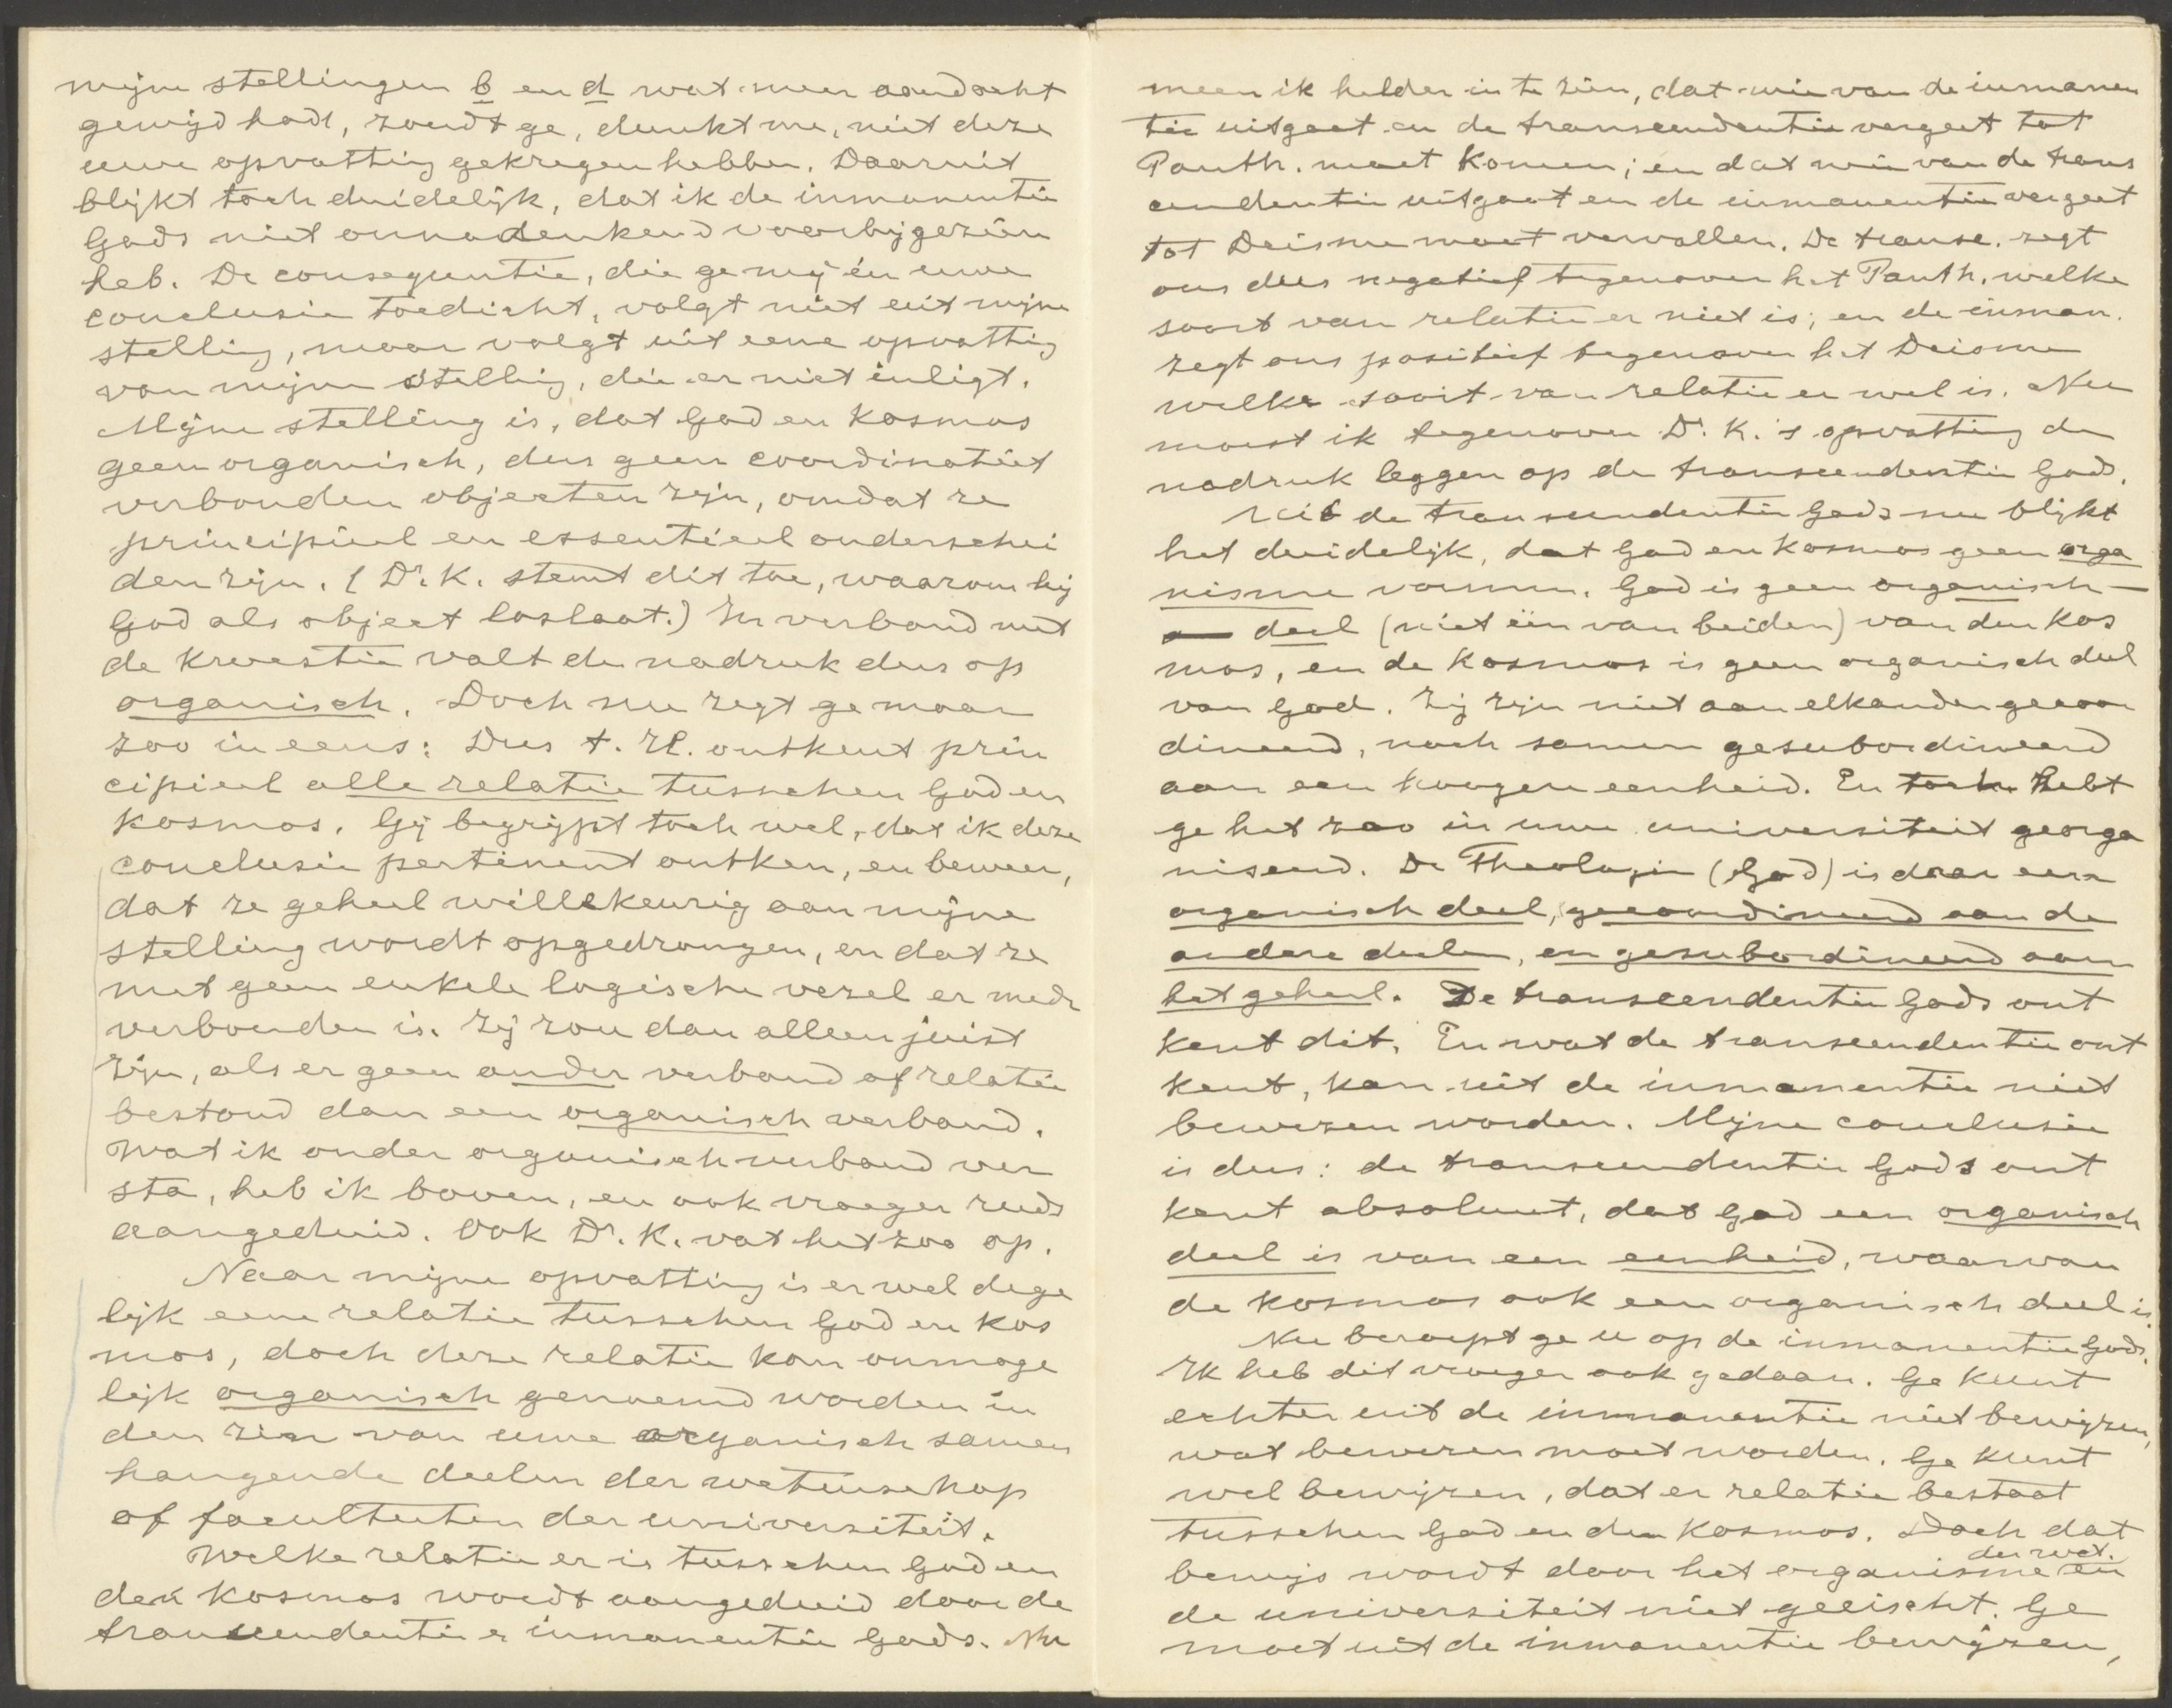 mijne stellingen b en d wat meer aandacht
gewijd hadt, zoudt ge, dunkt me, niet deze
uwe opvatting gekregen hebben. Daaruit
blijkt toch duidelijk, dat ik de inmanentie
Gods niet onnadenkend voorbijgezien
heb. De consequentie, die ge mij in uwe
conclusie toedicht, volgt niet uit mijne
stelling, maar volgt uit eene opvatting
van mijne stelling, die er niet inligt.
Mijne stelling is, dat God en kosmos
geen organisch, dus geen coordinatiet
verbonden objecten zijn, omdat ze
principieel en essentieel onderschei
den zijn. (Dr. K. stemt dit toe, waarom hij
God als object loslaat.) In verband met
de kwestie valt de nadruk dus op
organisch. Doch nu zegt ge maar
zoo in eens: Dus t. H. ontkent prin
cipieel alle relatie tusschen God en
kosmos. Gij begrijpt toch wel, dat ik deze
conclusie pertinent ontken, en beweer,
dat ze geheel willekeurig aan mijne
stelling wordt opgedrongen, en dat ze
met geen enkele logische vezel er mede
verbonden is. Zij zou dan alleen juist
zijn, als er geen ander verband of relatie
bestond dan een organisch verband.
Wat ik onder organisch verband ver
sta, heb ik boven, en ook vroeger reeds
aangeduid. Ook Dr. K. vat het zoo op.
Naar mijne opvatting is er wel dege
lijk eene relatie tusschen God en kos
mos, doch deze relatie kan onmoge
lijk organisch genoemd worden in
den zin van uwe organisch samen
hangende deelen der wetenschap
of faculteiten der universiteit.
Welke relatie er is tusschen God en
den kosmos wordt aangeduid door de
transcendentie en inmanentie Gods. Nu
meen ik helder in te zien, dat wie van de inmanen
tie uitgaat en de transcendentie vergeet tot
Panth. moet komen; en dat wie van de trans
cendentie uitgaat en de inmanentie vergeet
tot Deisme moet vervallen. De transc. zegt
ons dus negatief tegenover het Panth. welke
soort van relatie er niet is; en de inman.
zegt ons positief tegenover het Deisme
welke soort van relatie er wel is. Nu
moest ik tegenover Dr. K.'s opvatting de
nadruk leggen op de transcendentie Gods.
Uit de transcendentie Gods nu blijkt
het duidelijk, dat God en kosmos geen orga
nisme vormen. God is geen organisch
deel (niet één van beiden) van den kos
mos, en de kosmos is geen organisch deel
van God. Zij zijn niet aan elkander gecoor
dineerd, noch samen gesubordineerd
aan een hoogere eenheid. En toch hebt
ge het zoo in uwe universiteit georga
niseerd. De Theologie (God) is daar een
organisch deel, gecoordineerd aan de
andere deelen, en gesubordineerd aan
het geheel. De transcendentie Gods ont
kent dit. En wat de transcendentie ont
kent, kan uit de inmanentie niet
bewezen worden. Mijne conclusie
is dus: de transcendentie Gods ont
kent absoluut, dat God een organisch
deel is van een eenheid, waarvan
de kosmos ook een organisch deel is.
Nu beroept ge u op de inmanentie Gods.
Ik heb dit vroeger ook gedaan. Ge kunt
echter uit de inmanentie niet bewijzen,
wat bewezen moet worden. Ge kunt
wel bewijzen, dat er relatie bestaat
tusschen God en den kosmos. Doch dat
bewijs wordt door het organisme der wet. en
de universiteit niet geëischt. Ge
moet uit de inmanentie bewijzen,